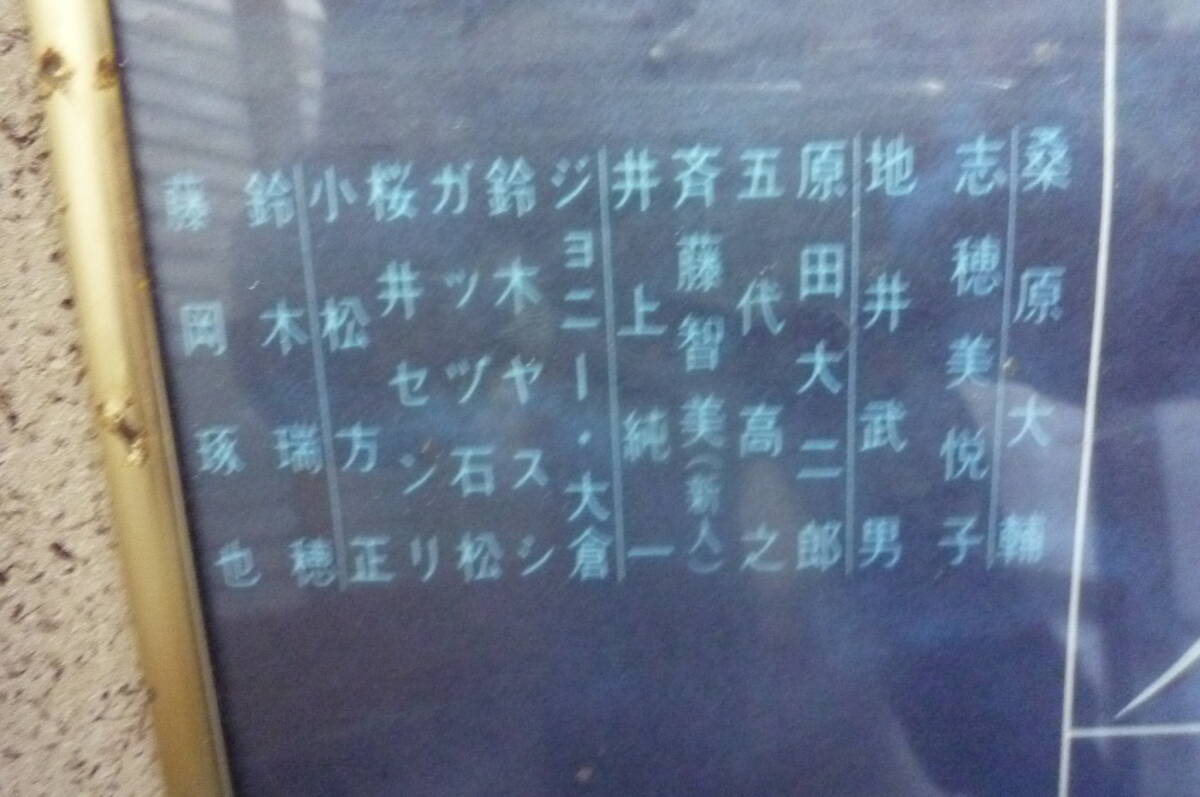 桑原大輔
志穂美悦子
地井武男
原田大二郎
五代高之
斉藤智美(新人)
井上純一
ジョニー・大倉
鈴木ヤスシ
ガッツ石松
桜井センリ
小松方正
鈴木瑞穂
藤岡琢也